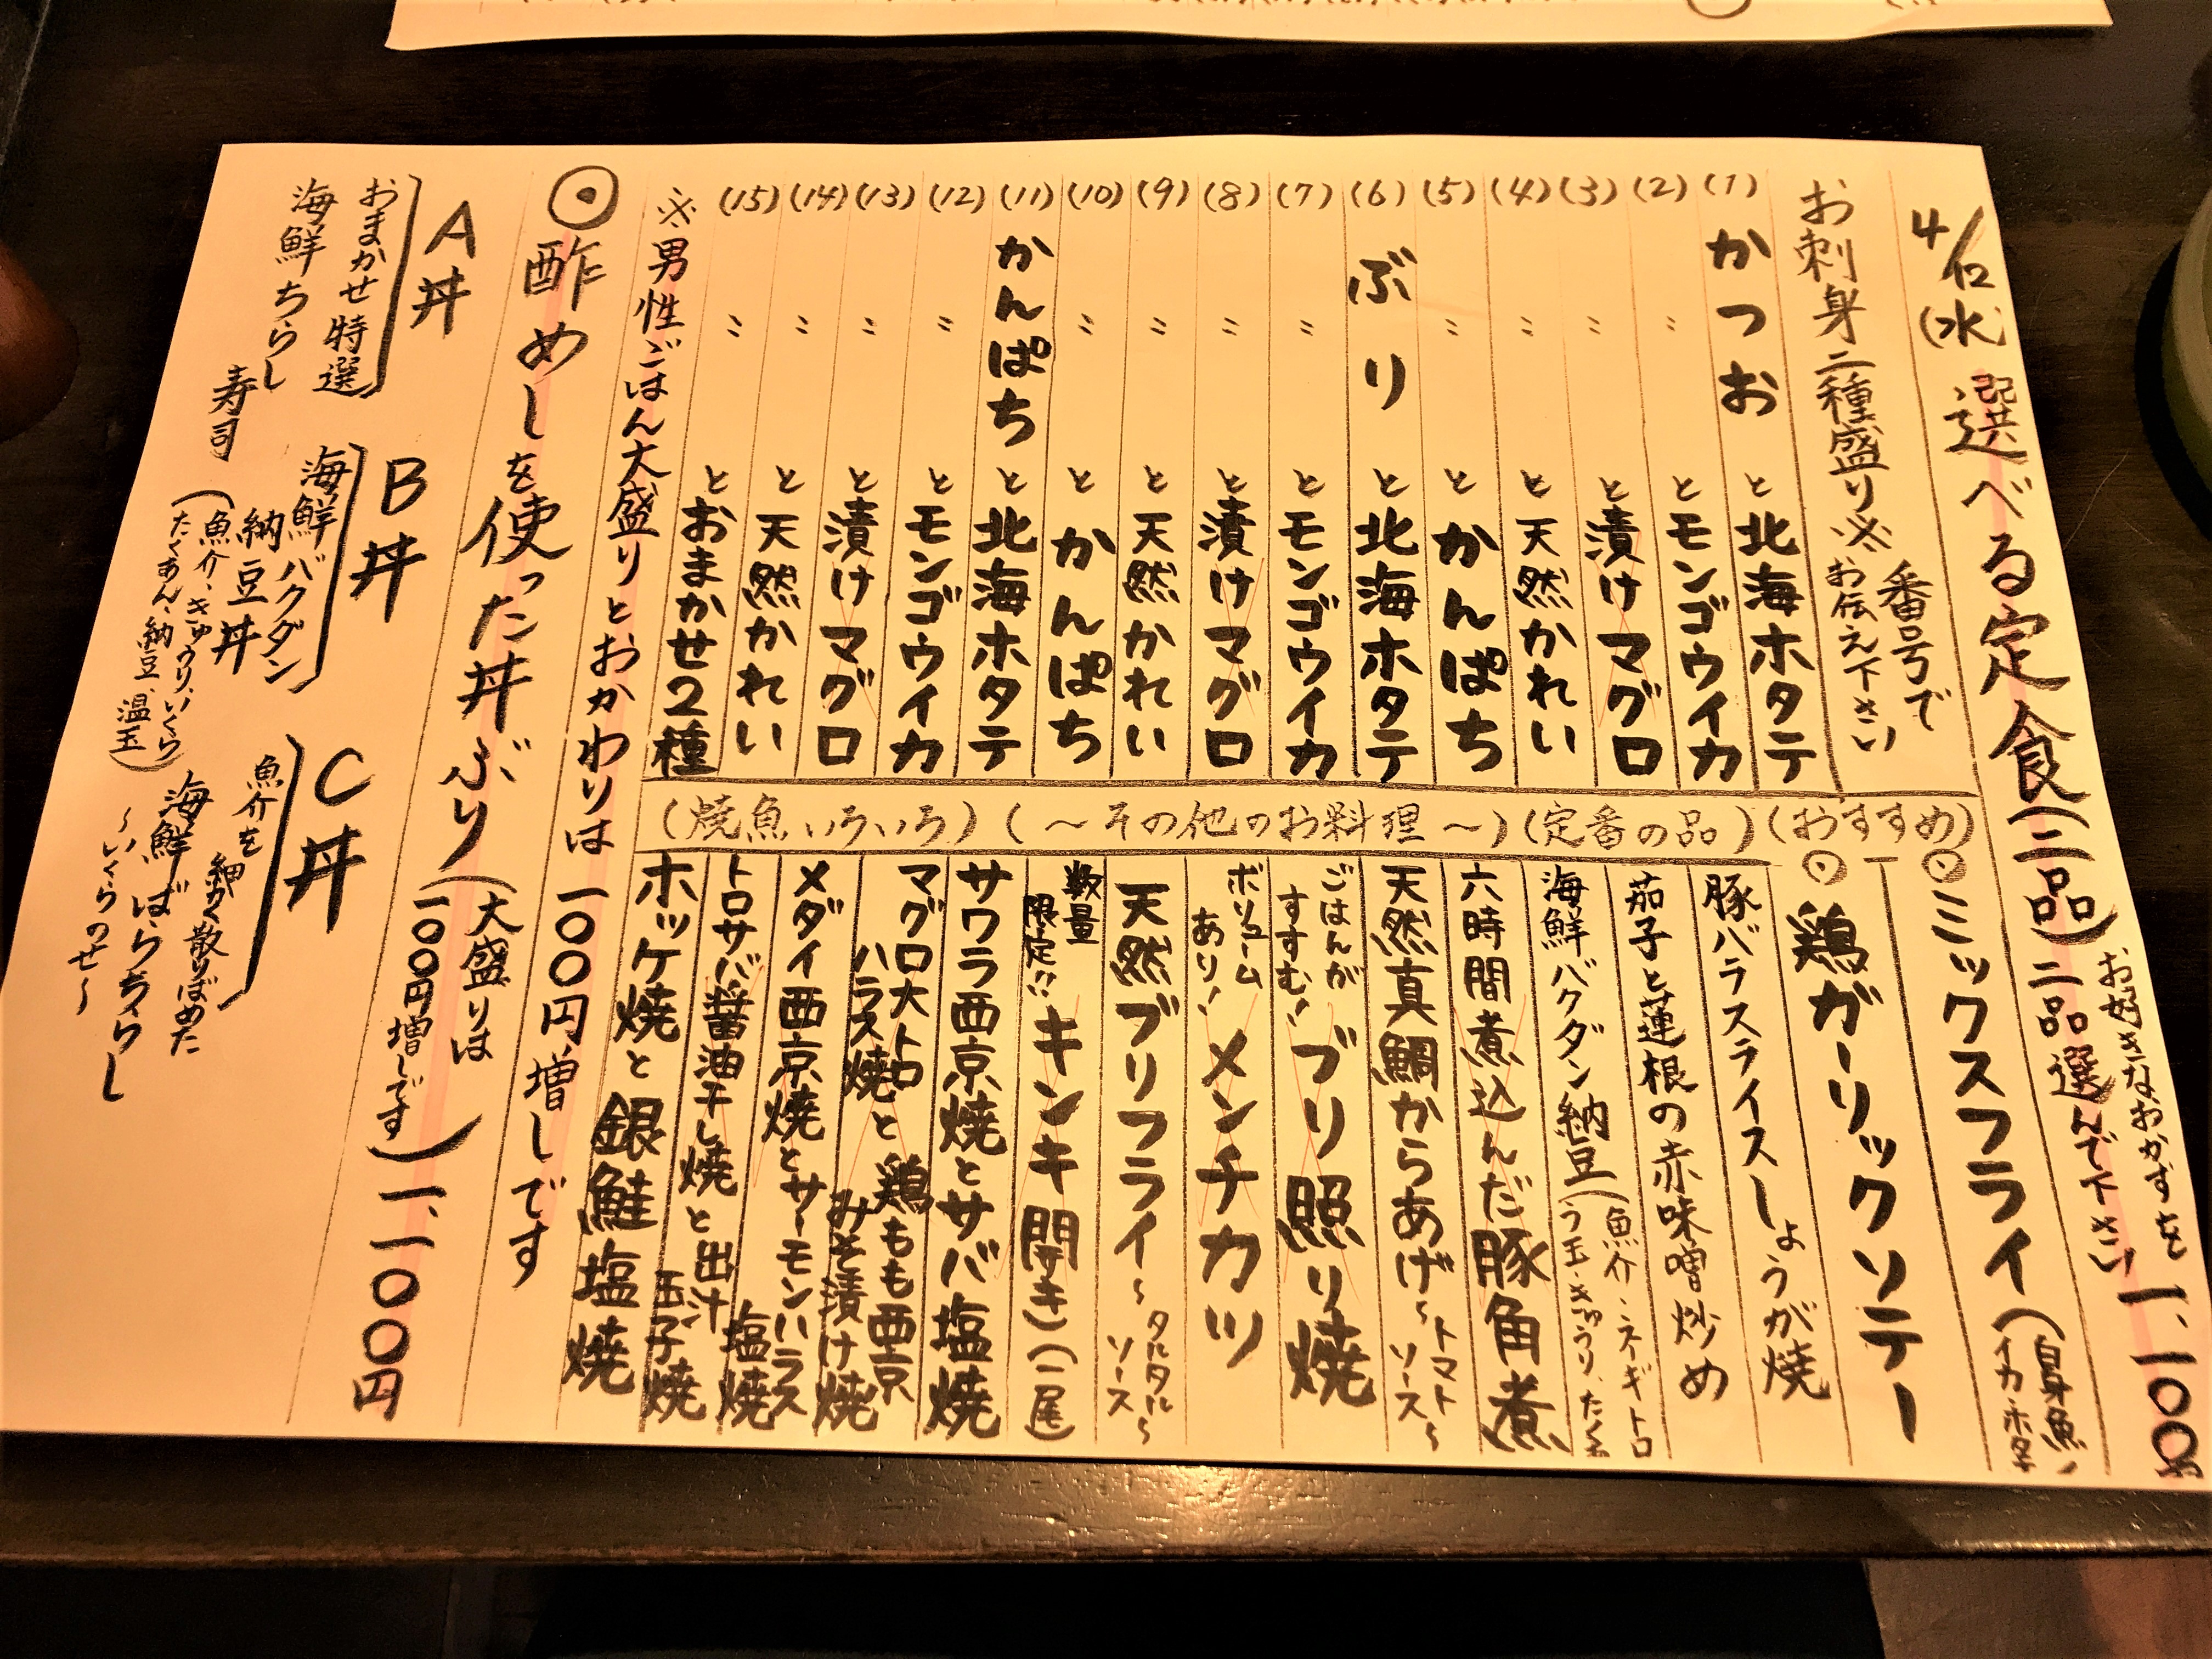 4/12(水) 選べる定食(二品)二品選んで下さい
お好きなおかずを
一、一〇〇
お刺身二種盛り※番号でお伝え下さい
(1) かつおと北海ホタテ
(2) 〃 とモンゴウイカ
(3) 〃 と漬けマグロ
(4) 〃 と天然かれい
(5) 〃 とかんぱち
(6) ぶりと北海ホタテ
(7) 〃 とモンゴウイカ
(8) 〃 と漬けマグロ
(9) 〃 と天然かれい
(10) 〃 とかんぱち
(11) かんぱちと北海ホタテ
(12) 〃 とモンゴウイカ
(13) 〃 と漬けマグロ
(14) 〃 と天然かれい
(15) 〃 とおまかせ2種
(おすすめ)
◎ミックスフライ(白身魚、イカ・ホタテ
◎鶏ガーリックソテー
(定番の品)
豚バラスライスしょうが焼
茄子と蓮根の赤味噌炒め
海鮮バクダン納豆(魚介・ネギトロ
う玉・きゅうり、たくあ
(〜その他のお料理〜)
六時間煮込んだ豚角煮
天然真鯛からあげ〜トマトソース〜
ごはんがすすむ! ブリ照り焼
ボリュームあり! メンチカツ
天然ブリフライ〜タルタルソース〜
数量限定!! キンキ開き(一尾)
(焼魚いろいろ)
サワラ西京焼とサバ塩焼
マグロ大トロハラス焼と鶏もも西京みそ漬け焼
メダイ西京焼とサーモンハラス塩焼
トロサバ醤油干し焼と出汁玉子焼
ホッケ焼と銀鮭塩焼
※男性ごはん大盛りとおかわりは一〇〇円増しです
◎酢めしを使った丼ぶり(大盛りは一〇〇円増しです)一、一〇〇円
A丼
おまかせ特選
海鮮ちらし寿司
B丼
海鮮バクダン
納豆丼
(魚介、きゅうり、いくら
たくあん、納豆、温玉)
C丼
魚介を細かく散りばめた
海鮮ばらちらし
〜いくらのせ〜